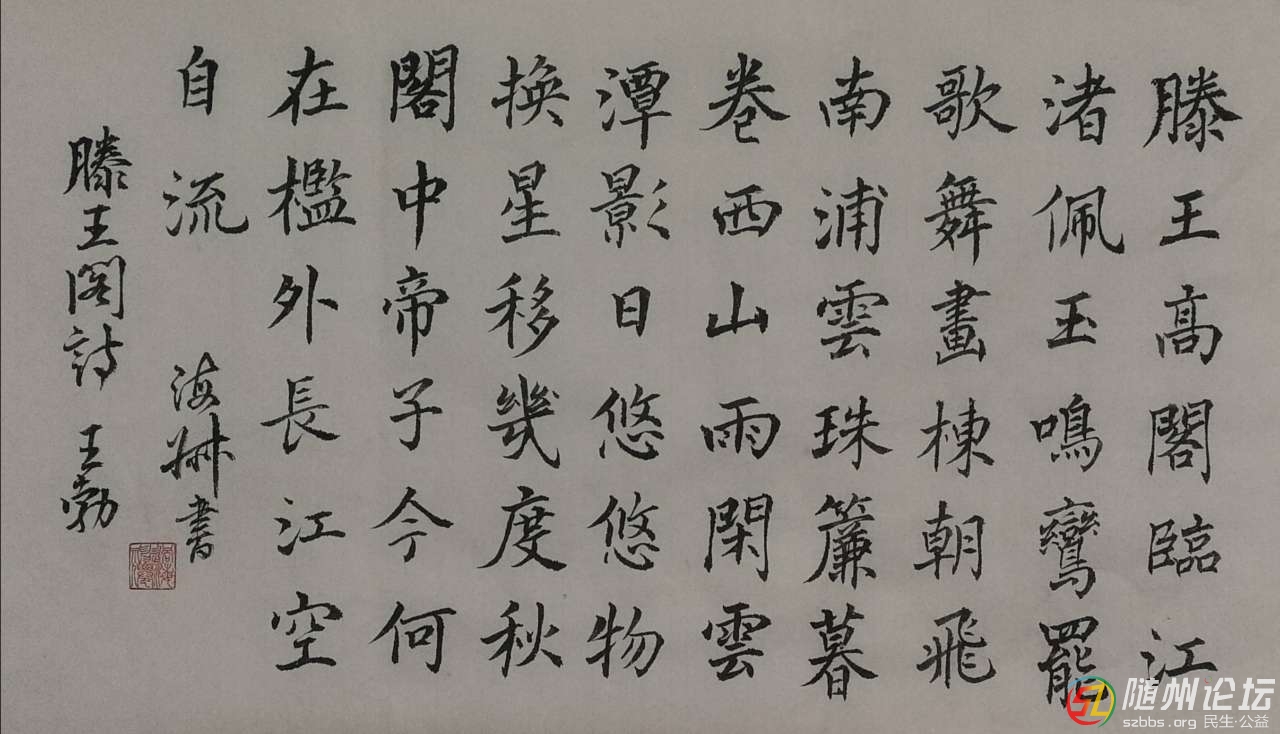 滕王高閣臨江
渚佩玉鳴鸞罷
歌舞畫棟朝飛
南浦雲珠簾暮
卷西山雨閑雲
潭影日悠悠物
換星移幾度秋
閣中帝子今何
在檻外長江空
自流
海 書
滕王閣詩 王勃
随州论坛
szbbs.org 民生·公益